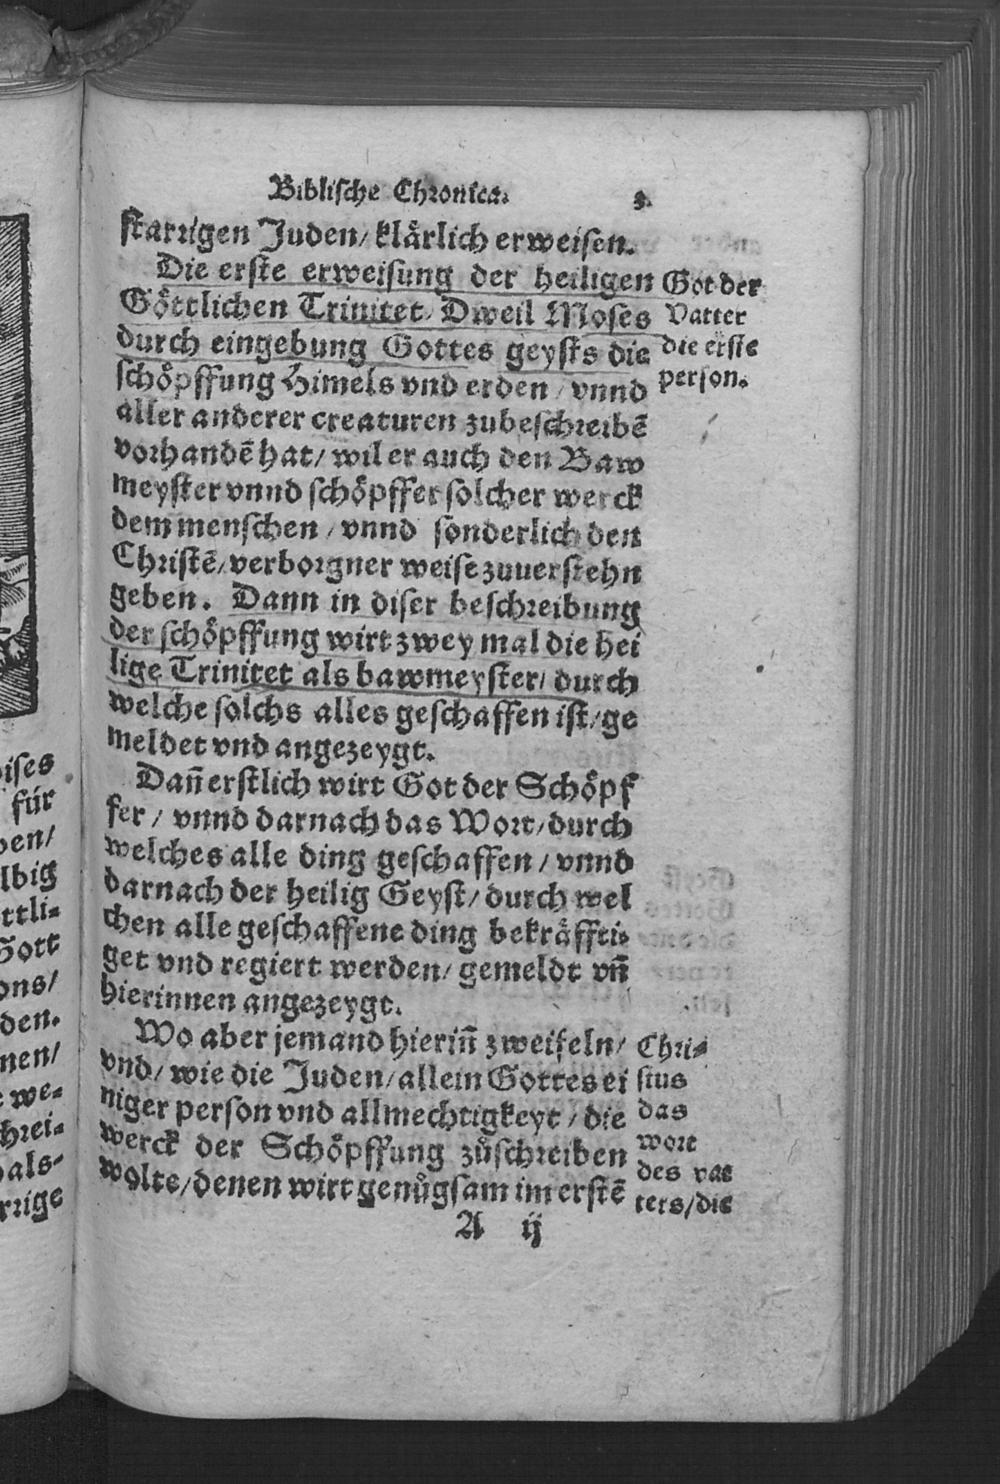 Biblische Chronica. 3.
starrigen Juden/ klårlich erweisen.
Die erste erweisung der heiligen
Gŏttlichen Trinitet/ Dweil Moses
durch eingebung Gottes geysts die
schŏpffung Himels vnd erden / vnnd
aller anderer creaturen zubeschreibē
vorhandē hat/ wil er auch den Baw
meyster vnnd schŏpffer solcher werck
dem menschen / vnnd sonderlich den
Christē/ verborgner weise zuuerstehn
geben. Dann in diser beschreibung
der schŏpffung wirt zwey mal die hei
lige Trinitet als bawmeyster/ durch
welche solchs alles geschaffen ist/ ge
meldet vnd angezeygt.
Dañ erstlich wirt Got der Schŏpf
fer / vnnd darnach das Wort/ durch
welches alle ding geschaffen / vnnd
darnach der heilig Geyst/ durch wel
chen alle geschaffene ding bekråffti-
get vnd regiert werden/ gemeldt vñ
hierinnen angezeygt.
Wo aber jemand hieriñ zweifeln/
vnd/ wie die Juden/ allein Gottes ei
niger person vnd allmechtigkeyt / die
werck der Schŏpffung zůschreiben
wolte/ denen wirt genůgsam im erstē
A ij
Got der
Vatter
die erste
person.
Chri-
stus
das
wort
des vat
ters/ die
für
ben/
lbig
ttli-
Gott
ons/
den.
nen/
we-
hrei-
als-
rrige